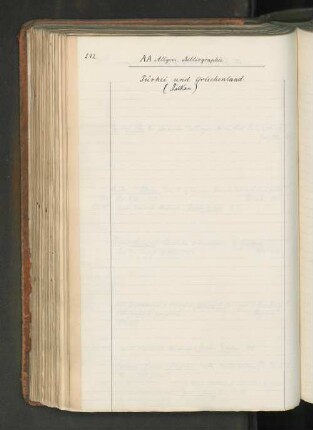 212
AA Allgem. Bibliographie.
Türkei und Griechenland.
(Balkan)